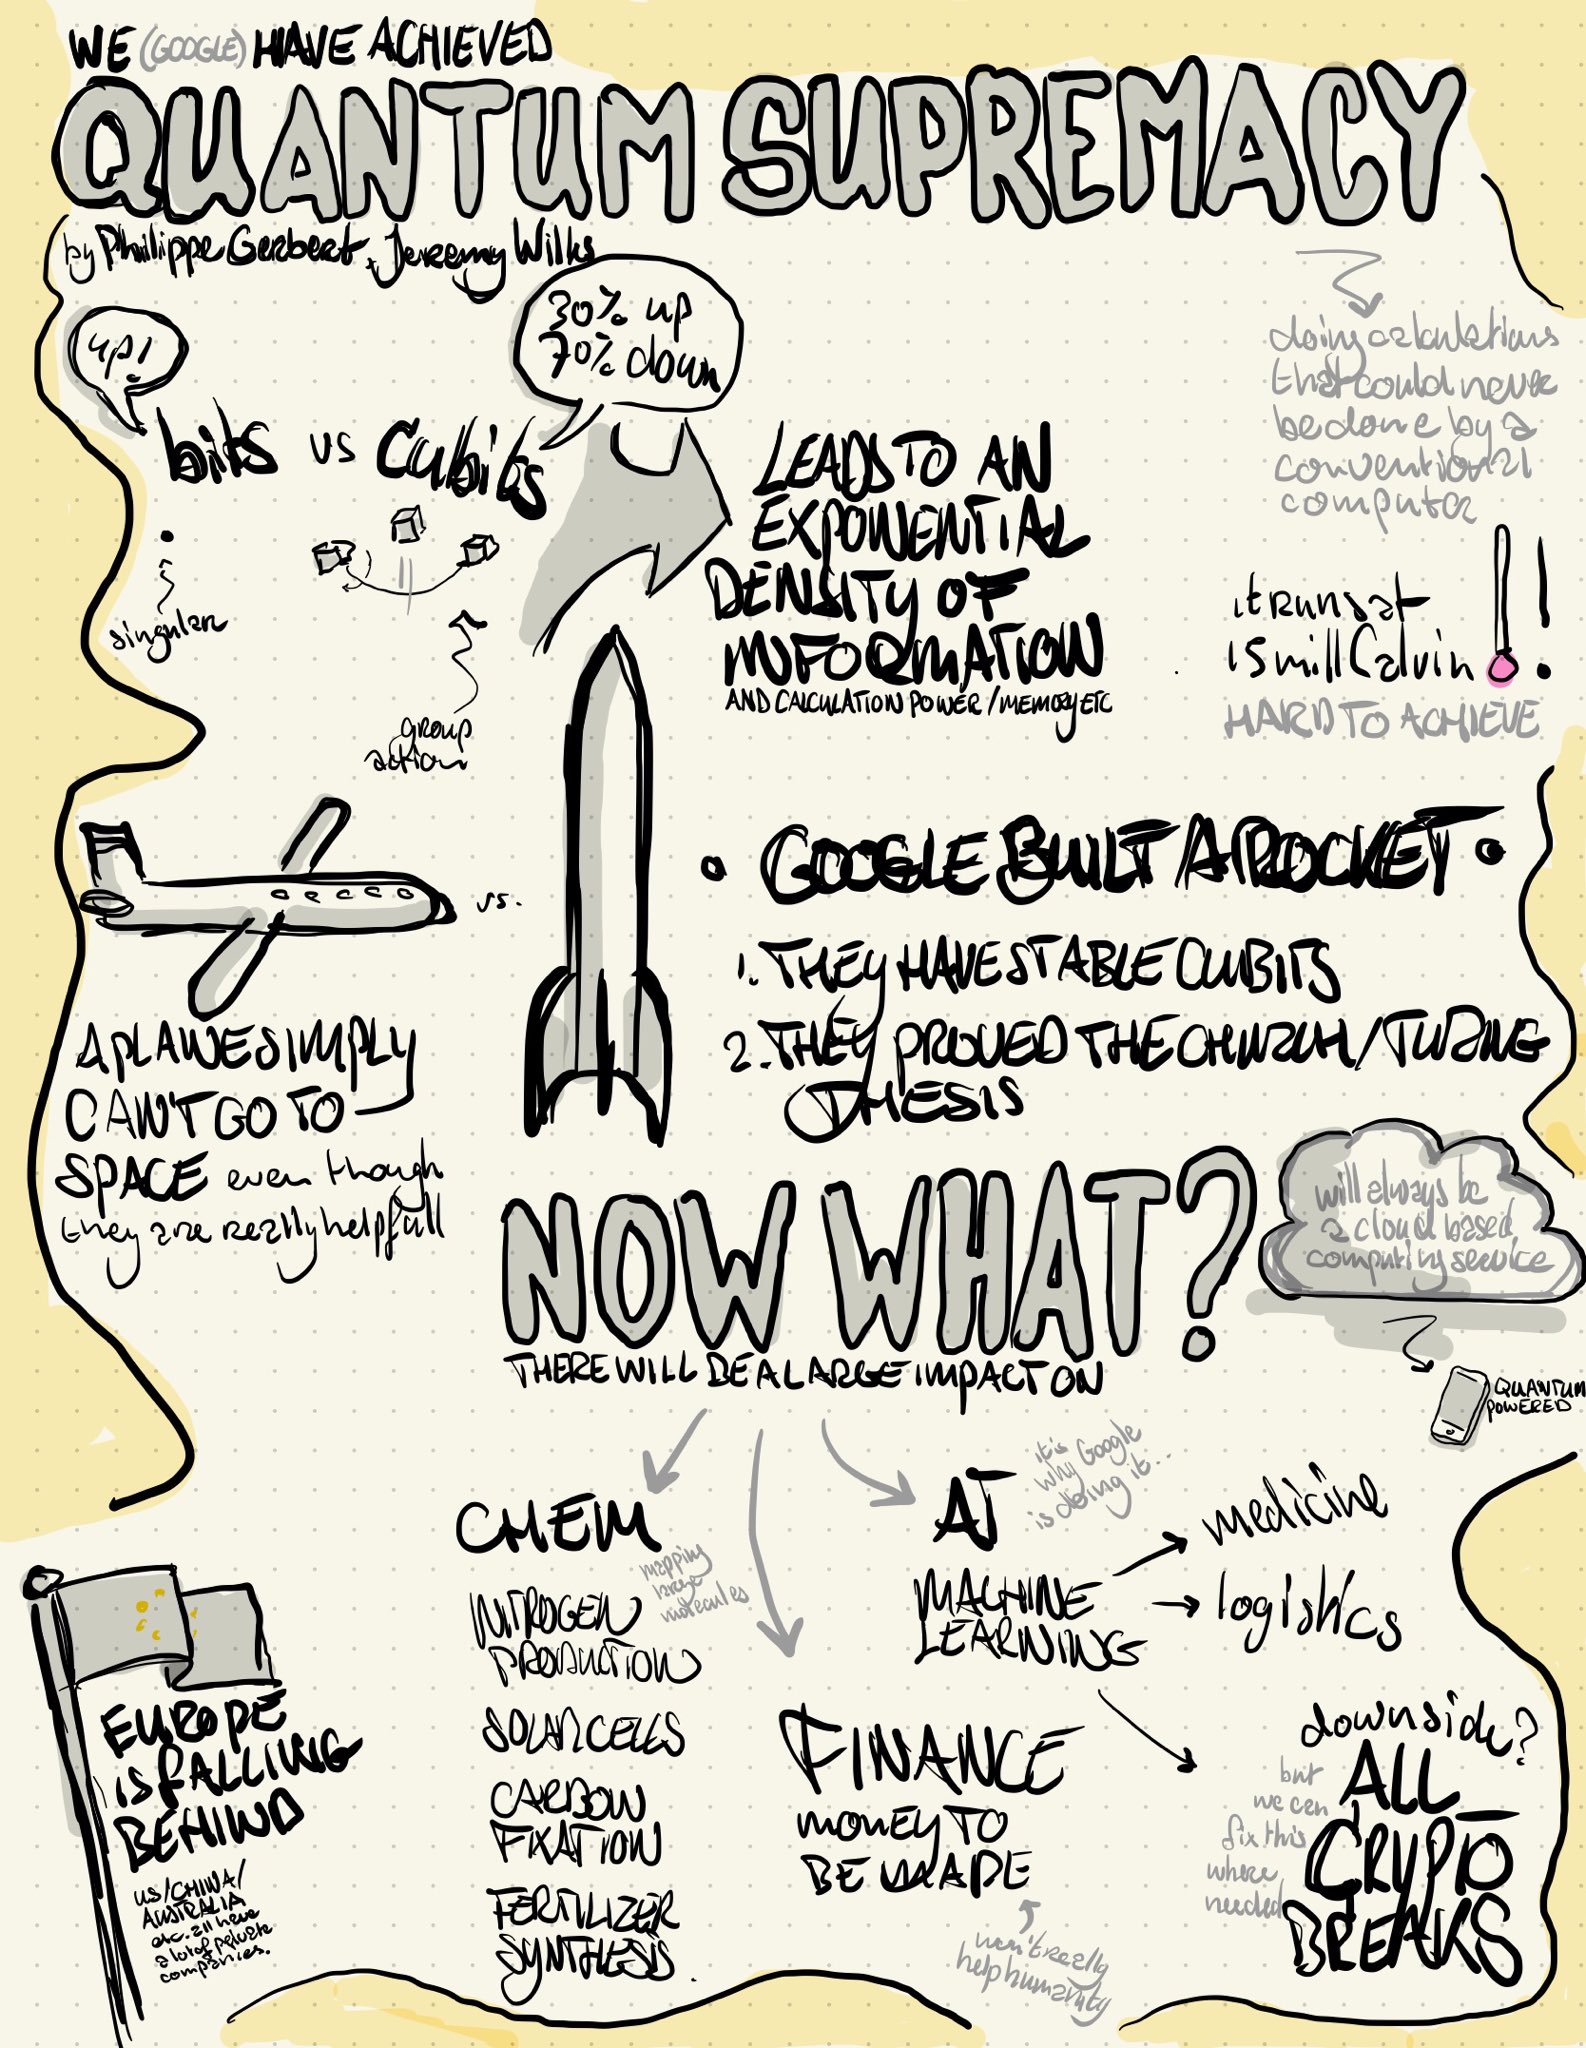 WE (GOOGLE) HAVE ACHIEVED
QUANTUM SUPREMACY
by Philippe Gerbert + Jeremy Wilks
up!
30% up
70% down
bits vs Cubits
singular
group
action
LEADS TO AN
EXPONENTIAL
DENSITY OF
INFORMATION
AND CALCULATION POWER / MEMORY ETC
doing calculations
that could never
be done by a
conventional
computer
it runs at
15 mill Calvin
HARD TO ACHIEVE
vs.
A PLANE SIMPLY
CAN'T GO TO
SPACE even though
they are really helpfull
• GOOGLE BUILT A ROCKET •
1. THEY HAVE STABLE CUBITS
2. THEY PROVED THE CHURCH/TURING
THESIS
NOW WHAT?
THERE WILL BE A LARGE IMPACT ON
will always be
a cloud based
computing service
QUANTUM
POWERED
CHEM
mapping
large
molecules
NITROGEN
PRODUCTION
SOLAR CELLS
CARBON
FIXATION
FERTILIZER
SYNTHESIS
AI
it's
why Google
is doing it...
MACHINE
LEARNING
medicine
logistics
FINANCE
MONEY TO
BE MADE
won't really
help humanity
downside?
ALL
CRYPTO
BREAKS
but
we can
fix this
where
needed
EUROPE
is FALLING
BEHIND
US/CHINA/
AUSTRALIA
etc. all have
a lot of private
companies.